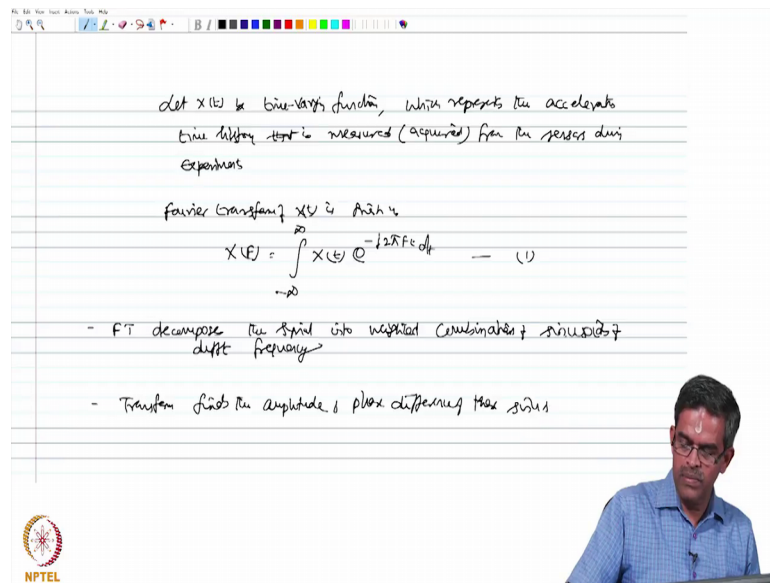 File Edit View Insert Actions Tools Help
B I
Let x(t) be time-varying function, which represents the accelerate
time history that is measured (acquired) from the sensor during
experiments
Fourier transform of x(t) is
X(F) = ∫_{-∞}^{∞} x(t) e^{-j2πFt} dt — (1)
- FT decompose the signal into weighted combination of sinusoids of
diff frequency
- Transform finds the amplitude & phase difference of these
NPTEL